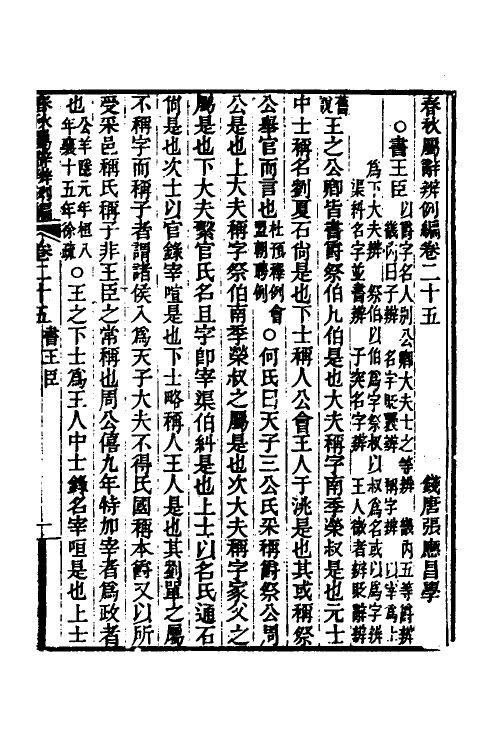 春秋屬辭辨例編卷二十五　錢唐張應昌學
○書王臣 以爵字名人別公卿大夫士之等辨　畿內五等爵辨
畿內曰子辨　名字貶褒辨　稱字辨　以宰爲上
爲下大夫辨　祭伯以伯爲字祭叔以叔爲名或以爲字辨
渠糾名字並書辨　子突名字辨　王人微者辨貶辭辨
舊說 王之公卿皆書爵祭伯凡伯是也大夫稱字南季榮叔是也元士
中士稱名劉夏石尙是也下士稱人公會王人于洮是也其或稱祭
公舉官而言也 杜預釋例會盟朝聘例 ○何氏曰天子三公氏采稱爵祭公周
公是也上大夫稱字祭伯南季榮叔之屬是也次大夫稱字家父之
屬是也下大夫繫官氏名且字卽宰渠伯糾是也上士以名氏通石
尙是也次士以官錄宰咺是也下士略稱人王人是也其劉單之屬
不稱字而稱子者謂諸侯入爲天子大夫不得氏國稱本爵又以所
受采邑稱氏稱子非王臣之常稱也周公僖九年特加宰者爲政者
也 公羊隱元年桓八年襄十五年徐疏 ○王之下士爲王人中士錄名宰咺是也上士
春秋屬辭辨例編 卷二十五 書王臣 一